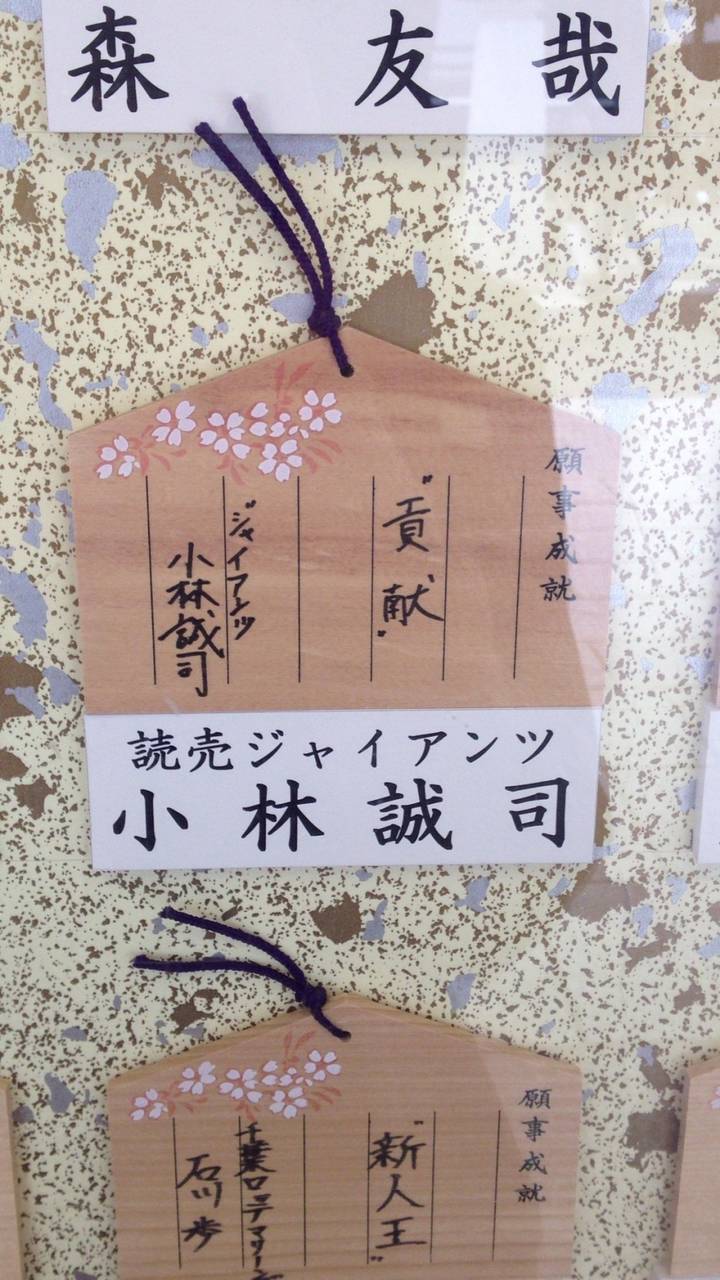 森友哉
願事成就
"貢献"
ジャイアンツ
小林誠司
読売ジャイアンツ
小林誠司
願事成就
"新人王"
千葉ロッテマリーン
石川歩